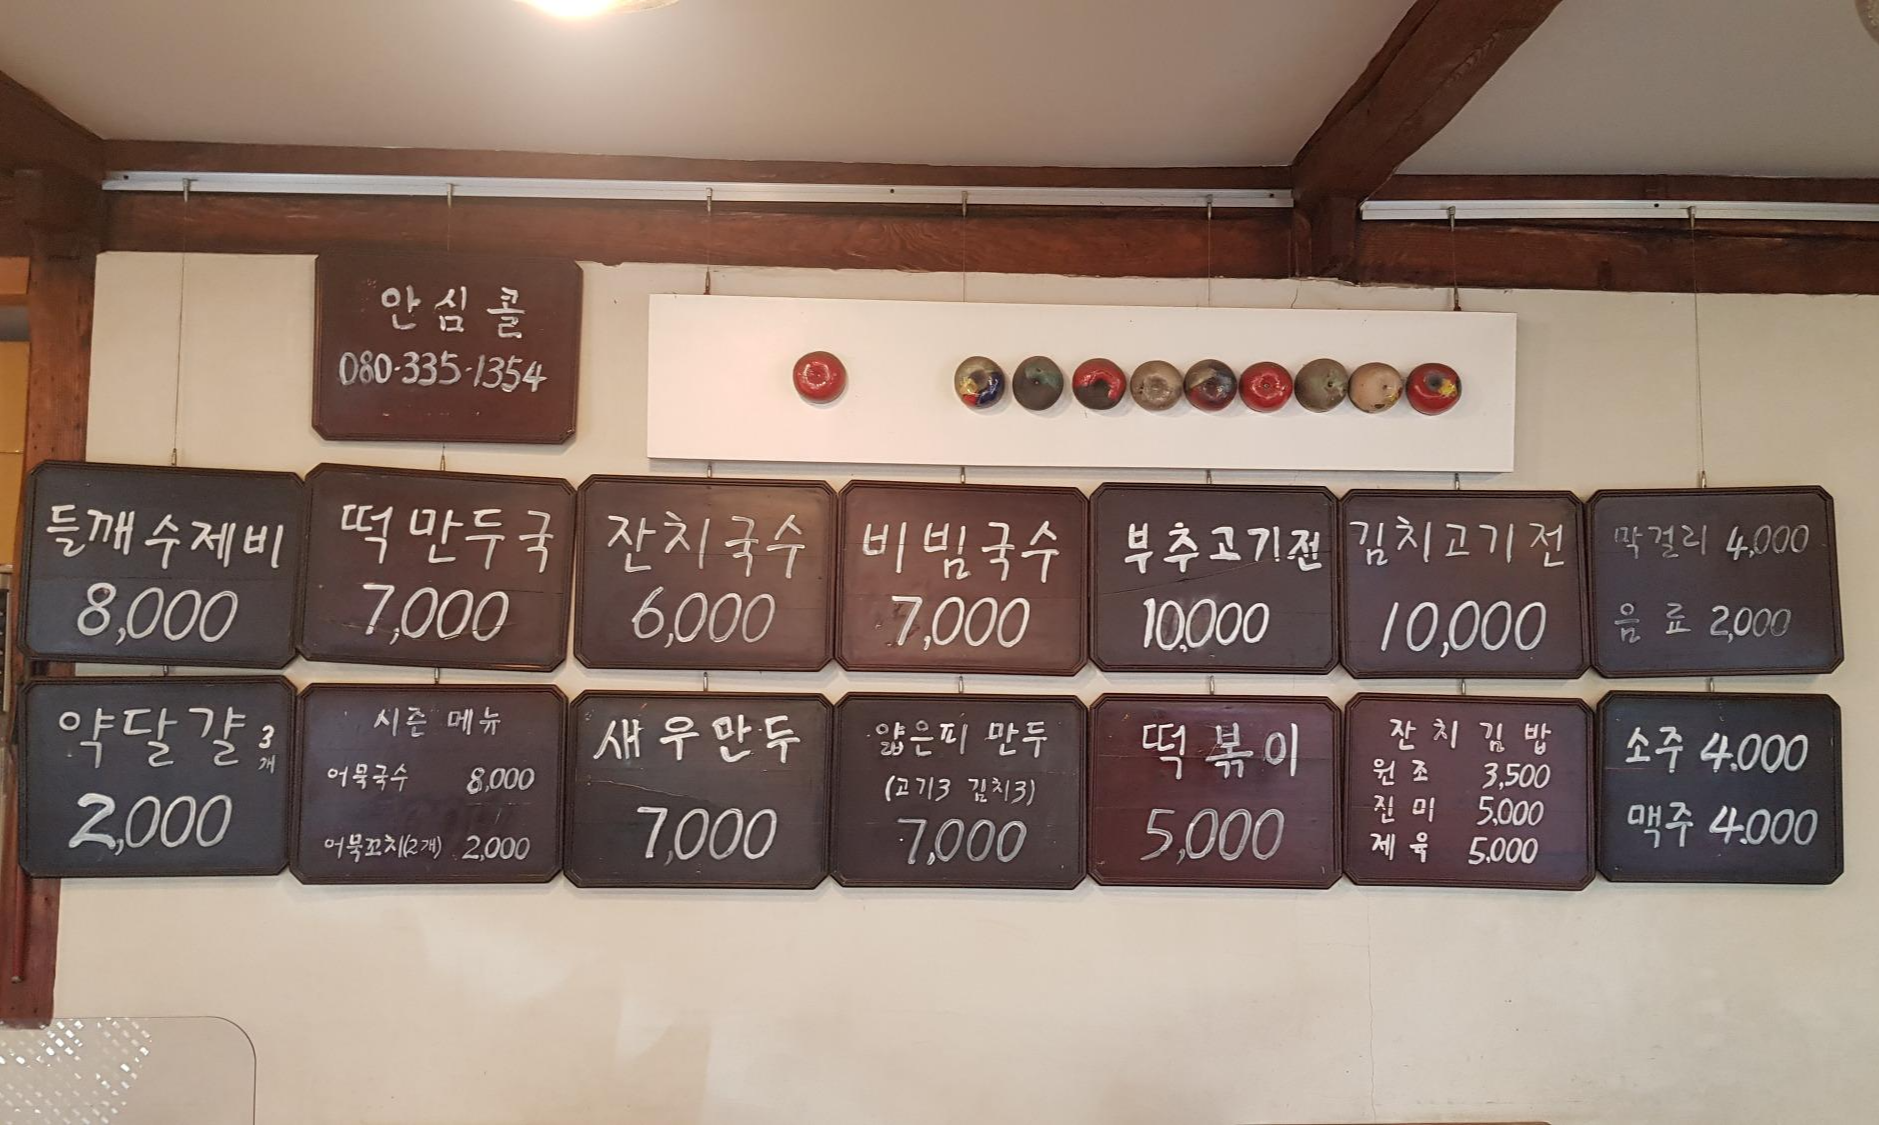 안심콜
080-335-1354
들깨수제비
8,000
떡만두국
7,000
잔치국수
6,000
비빔국수
7,000
부추고기전
10,000
김치고기전
10,000
막걸리 4,000
음료 2,000
약달걀 3개
2,000
시즌 메뉴
어묵국수 8,000
어묵꼬치(2개) 2,000
새우만두
7,000
얇은피 만두
(고기3 김치3)
7,000
떡볶이
5,000
잔치김밥
원조 3,500
진미 5,000
제육 5,000
소주 4.000
맥주 4.000